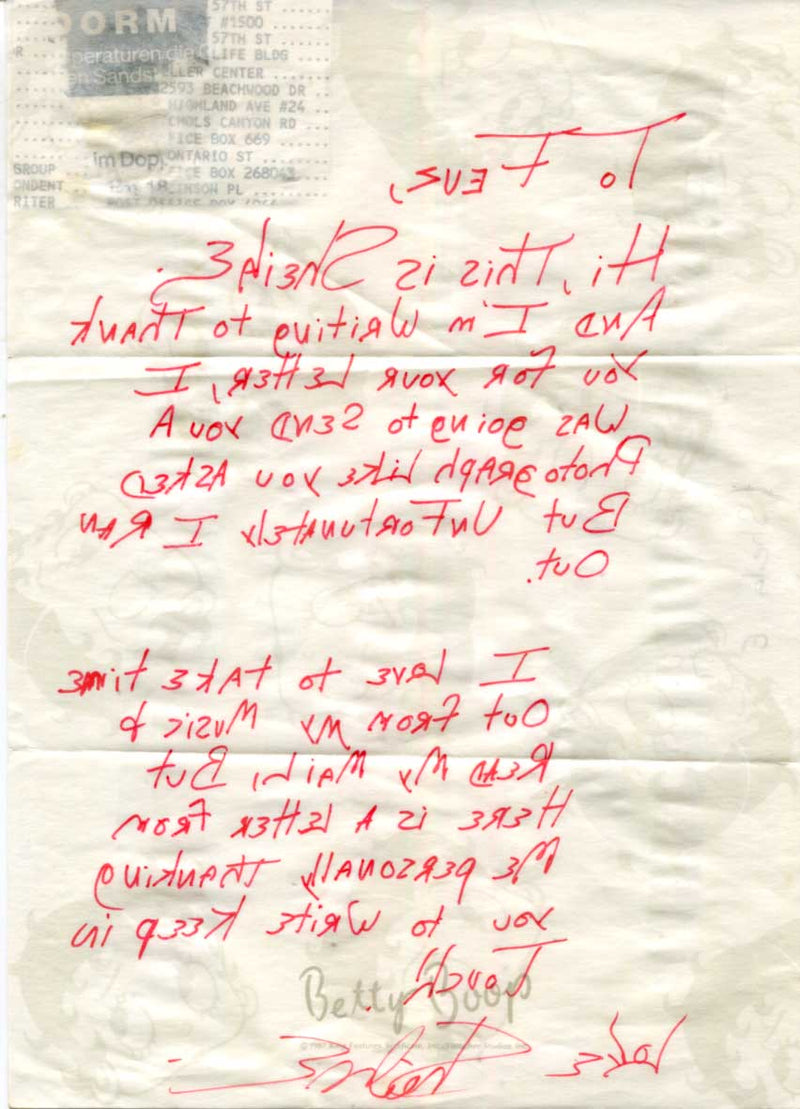 57TH ST
ORM #1500
57TH ST
R peraturen die LIFE BLDG
en Sandst LLER CENTER
2593 BEACHWOOD DR
HIGHLAND AVE #24
CHOLS CANYON RD
ICE BOX 669
im Dop ONTARIO ST
GROUP ICE BOX 26804
ONDENT INSON PL
RITER
To
Hi, This is Sheila E.
And I'm Writing to Thank
You For your letter, I
Was going to Send you A
Photograph like you Asked
But Unfortunately I Ran
Out.
I love to take time
Out From My Music &
Read My Mail, But
Here is A letter From
Me personally Thanking
you to Write Keep in
Touch
Betty Boop
Love